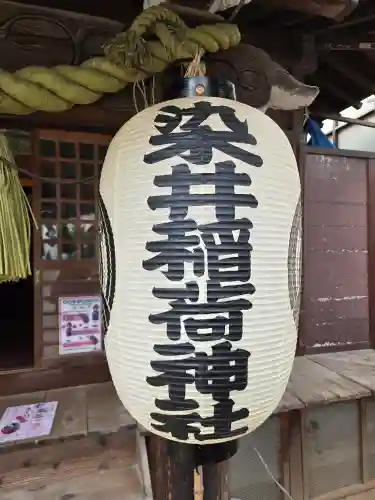 染井稲荷神社